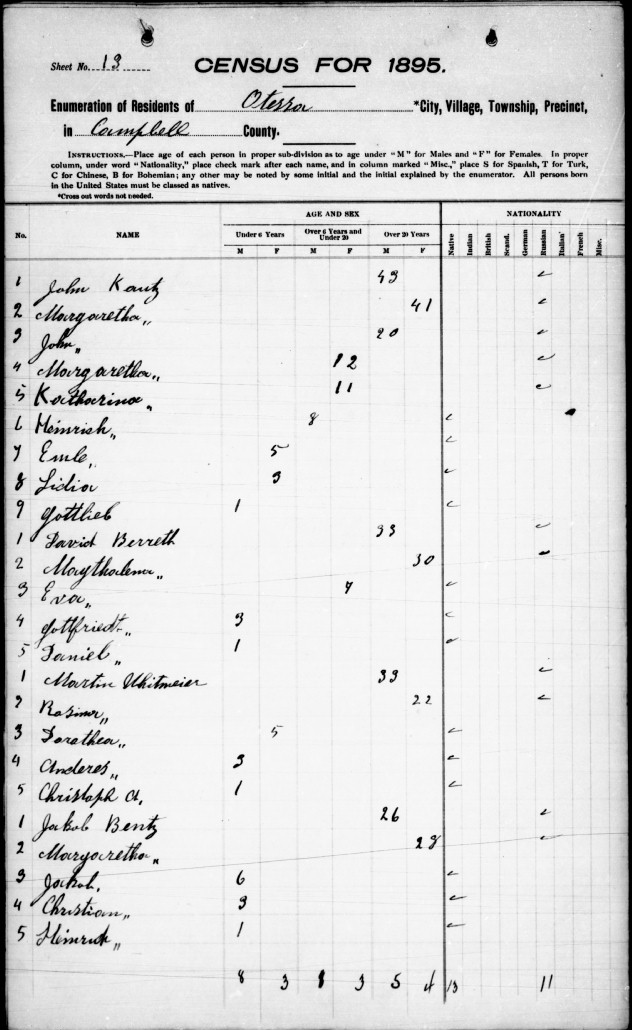 Sheet No. 13
CENSUS FOR 1895.
Enumeration of Residents of Otessa *City, Village, Township, Precinct,
in Campbell County.
INSTRUCTIONS.—Place age of each person in proper sub-division as to age under "M" for Males and "F" for Females. In proper
column, under word "Nationality," place check mark after each name, and in column marked "Misc.," place S for Spanish, T for Turk,
C for Chinese, B for Bohemian; any other may be noted by some initial and the initial explained by the enumerator. All persons born
in the United States must be classed as natives.
*Cross out words not needed.
AGE AND SEX NATIONALITY
No. NAME Under 6 Years Over 6 Years and Under 20 Over 20 Years Native Indian British Scand. German Russian Italian French Misc.
M F M F M F
1 John Kautz 43 ✓
2 Margaretha „ 41 ✓
3 John „ 20 ✓
4 Margaretha „ 12 ✓
5 Katharina „ 11 ✓
6 Heinrish „ 8 ✓
7 Emle „ 5 ✓
8 Lidia 3 ✓
9 Gottlieb 1 ✓
1 David Berreth 33 ✓
2 Maythalena „ 30 ✓
3 Eva „ 7 ✓
4 Gottfriedt „ 3 ✓
5 Daniel „ 1 ✓
1 Martin Whitmeier 33 ✓
2 Rosina „ 22 ✓
3 Dorathea „ 5 ✓
4 Anderes „ 3 ✓
5 Christoph A. 1 ✓
1 Jakob Bentz 26 ✓
2 Margaretha „ 28 ✓
3 Jakob. 6 ✓
4 Christian „ 3 ✓
5 Heinrich „ 1 ✓
8 3 1 3 5 4 13 11